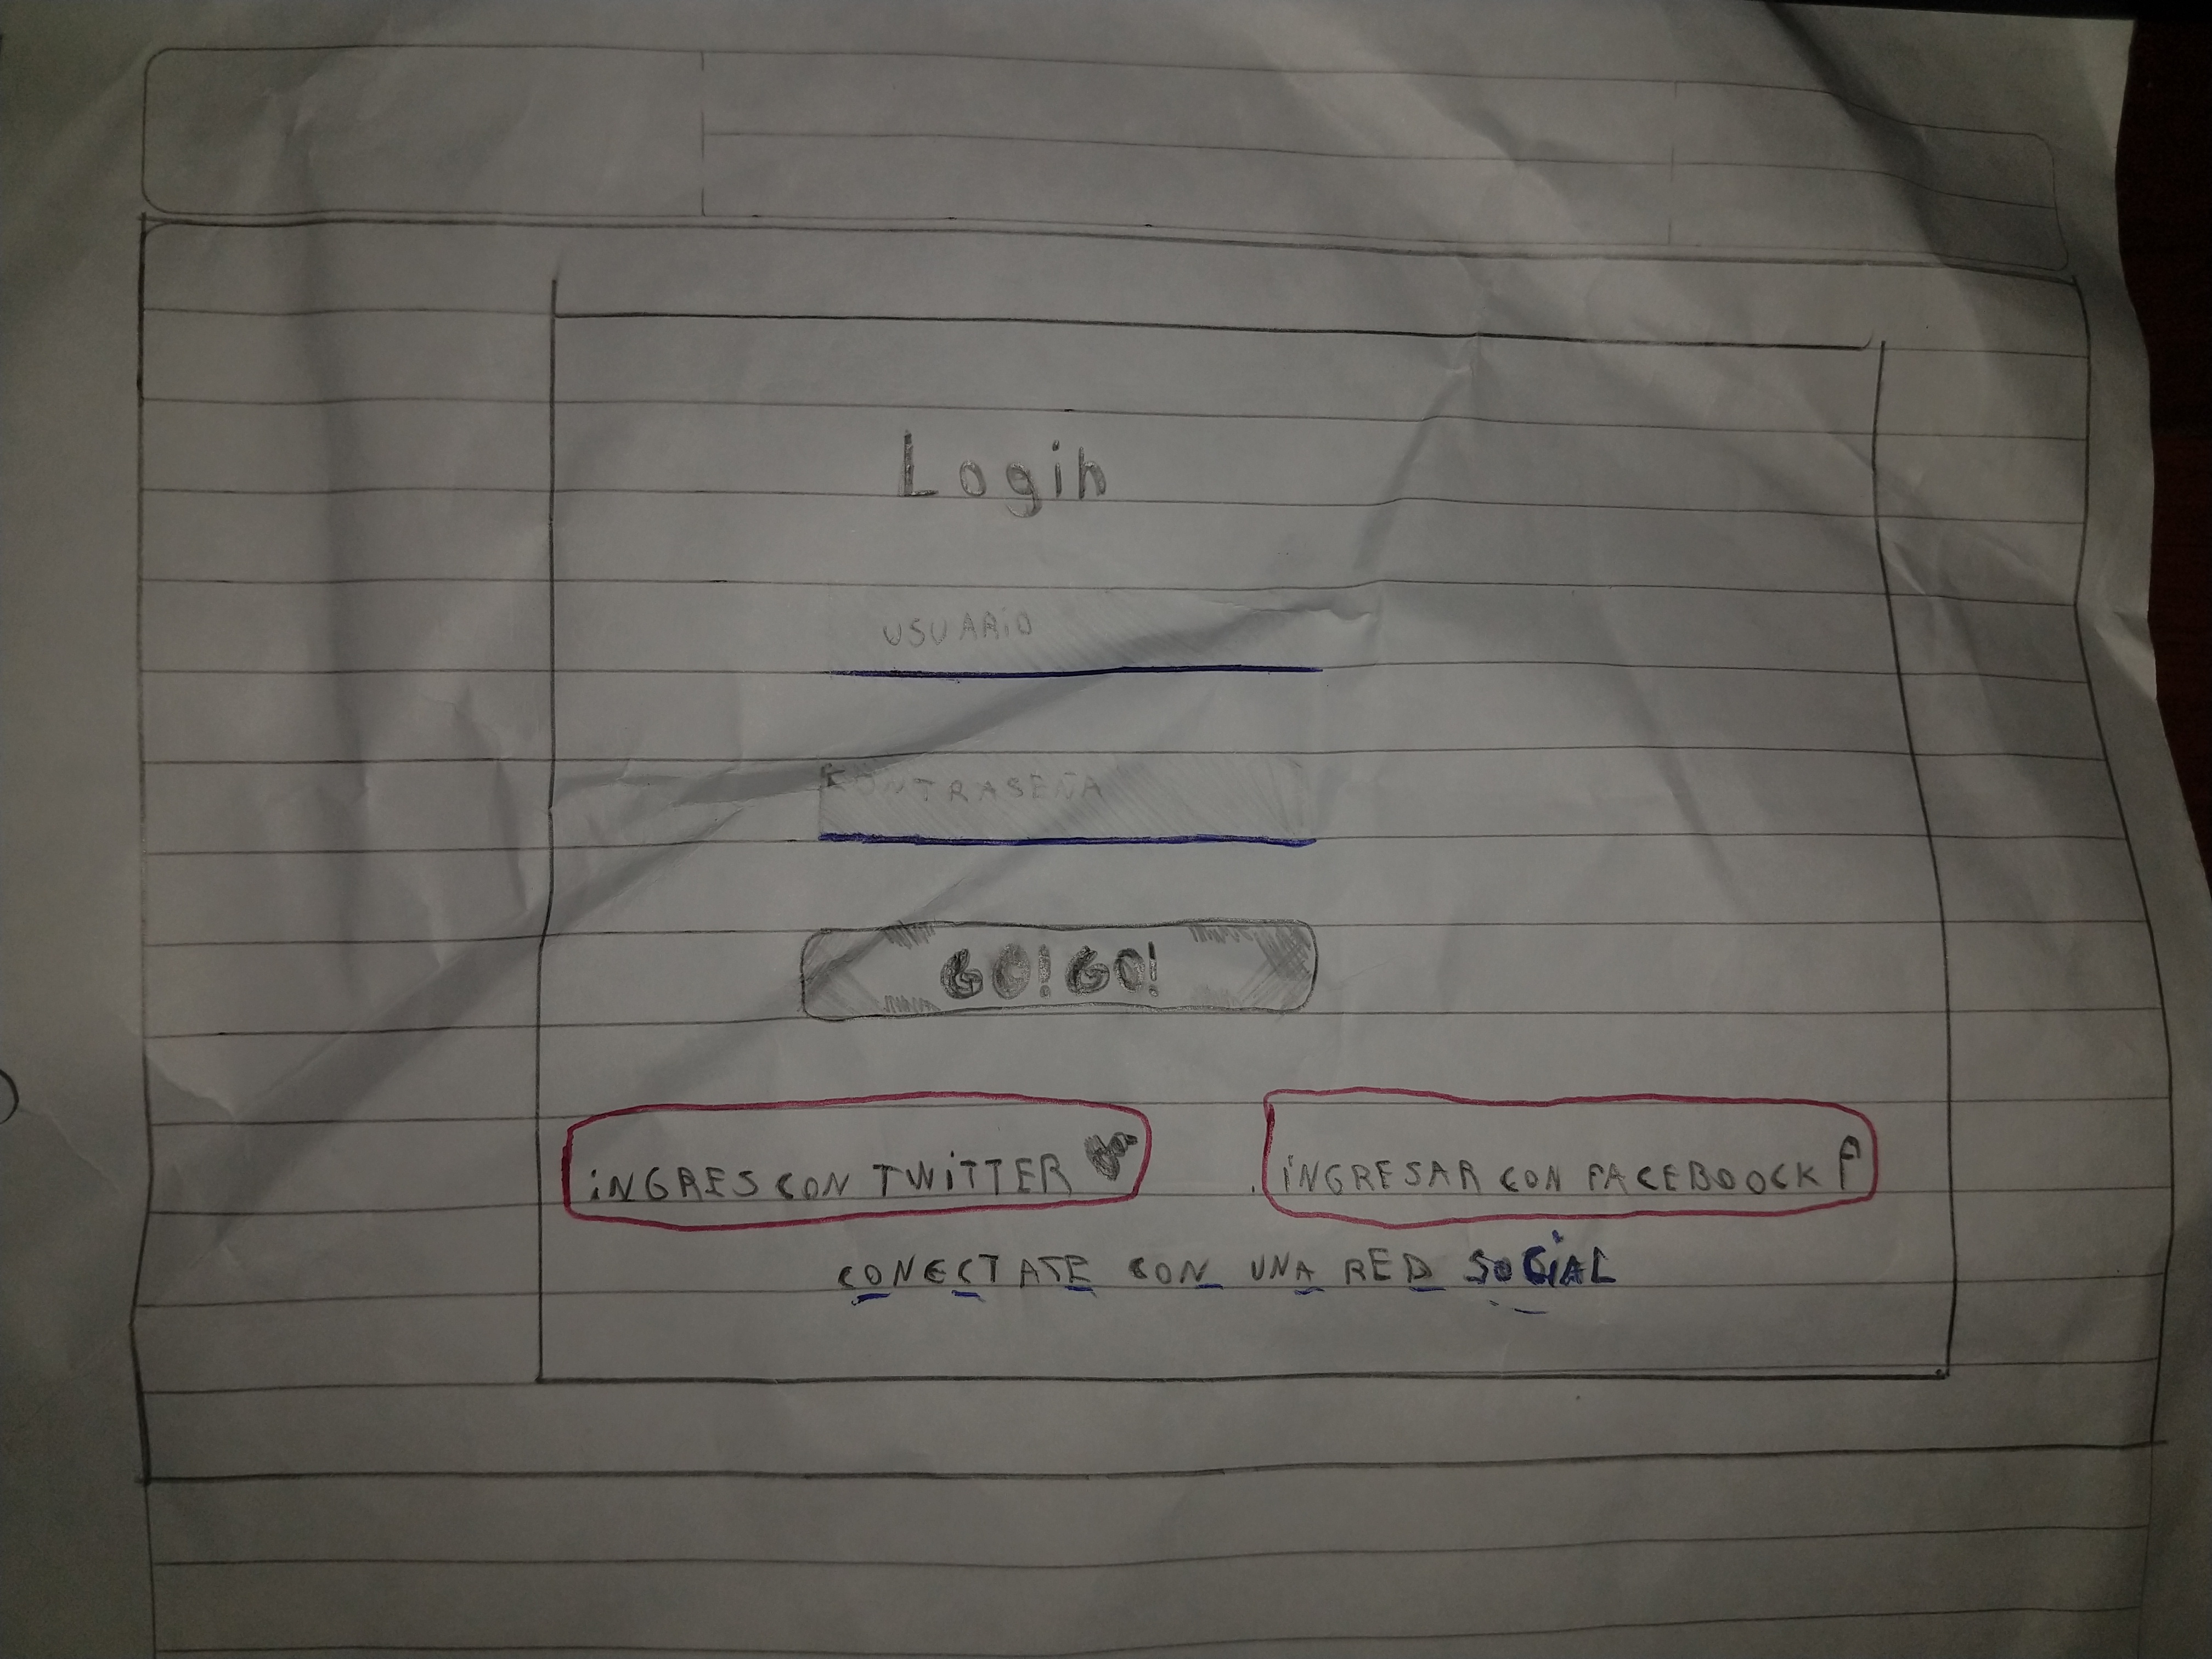 Login
USUARIO
CONTRASEÑA
GO! GO!
INGRES CON TWITTER
INGRESAR CON FACEBOOCK f
CONECTATE CON UNA RED SOCIAL